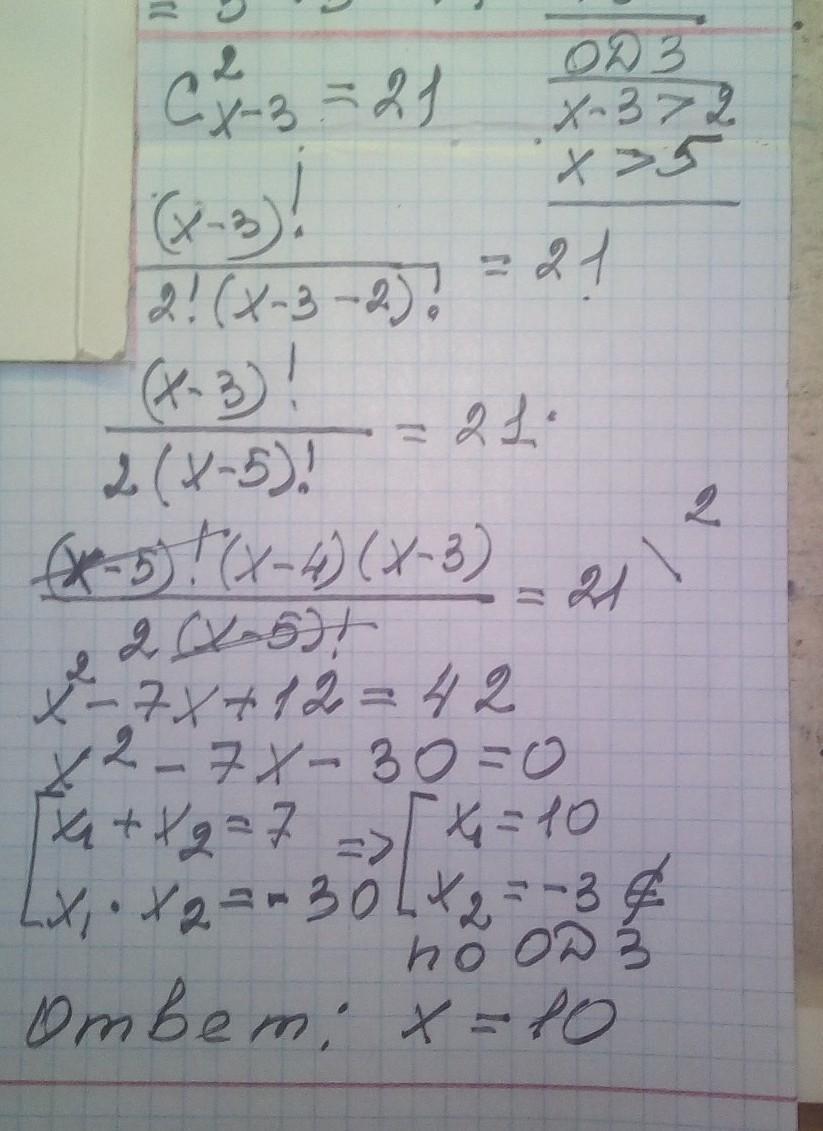 ОДЗ
C²ₓ₋₃ = 21
x-3 > 2
x > 5
(x-3)!
2! (x-3-2)! = 21
(x-3)!
2 (x-5)! = 21
2
(x-5)! (x-4) (x-3)
2 (x-5)! = 21
x² - 7x + 12 = 42
x² - 7x - 30 = 0
[ x₁ + x₂ = 7 => [ x₁ = 10
x₁ · x₂ = - 30 x₂ = -3 ∉
по ОДЗ
Ответ: x = 10